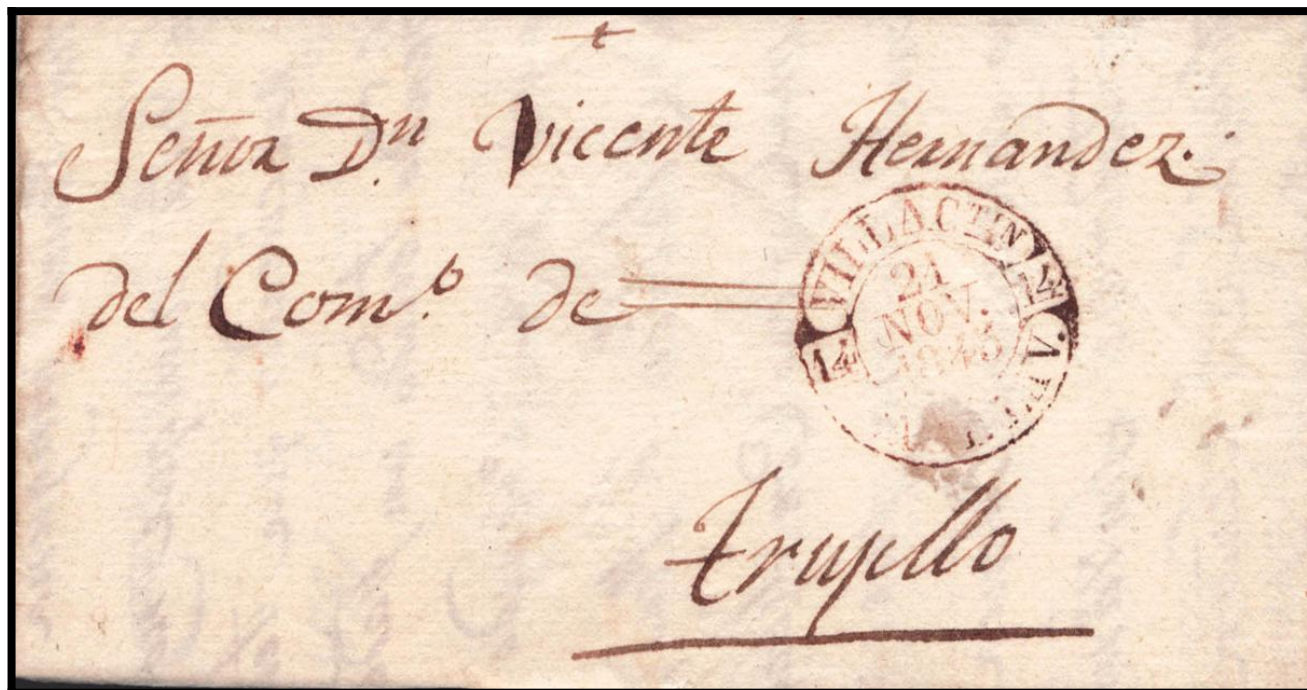 Señor Dn. Vicente Hernandez.
del Com.o de
VILLACTIN
21
NOV.
1843
14
Trujillo